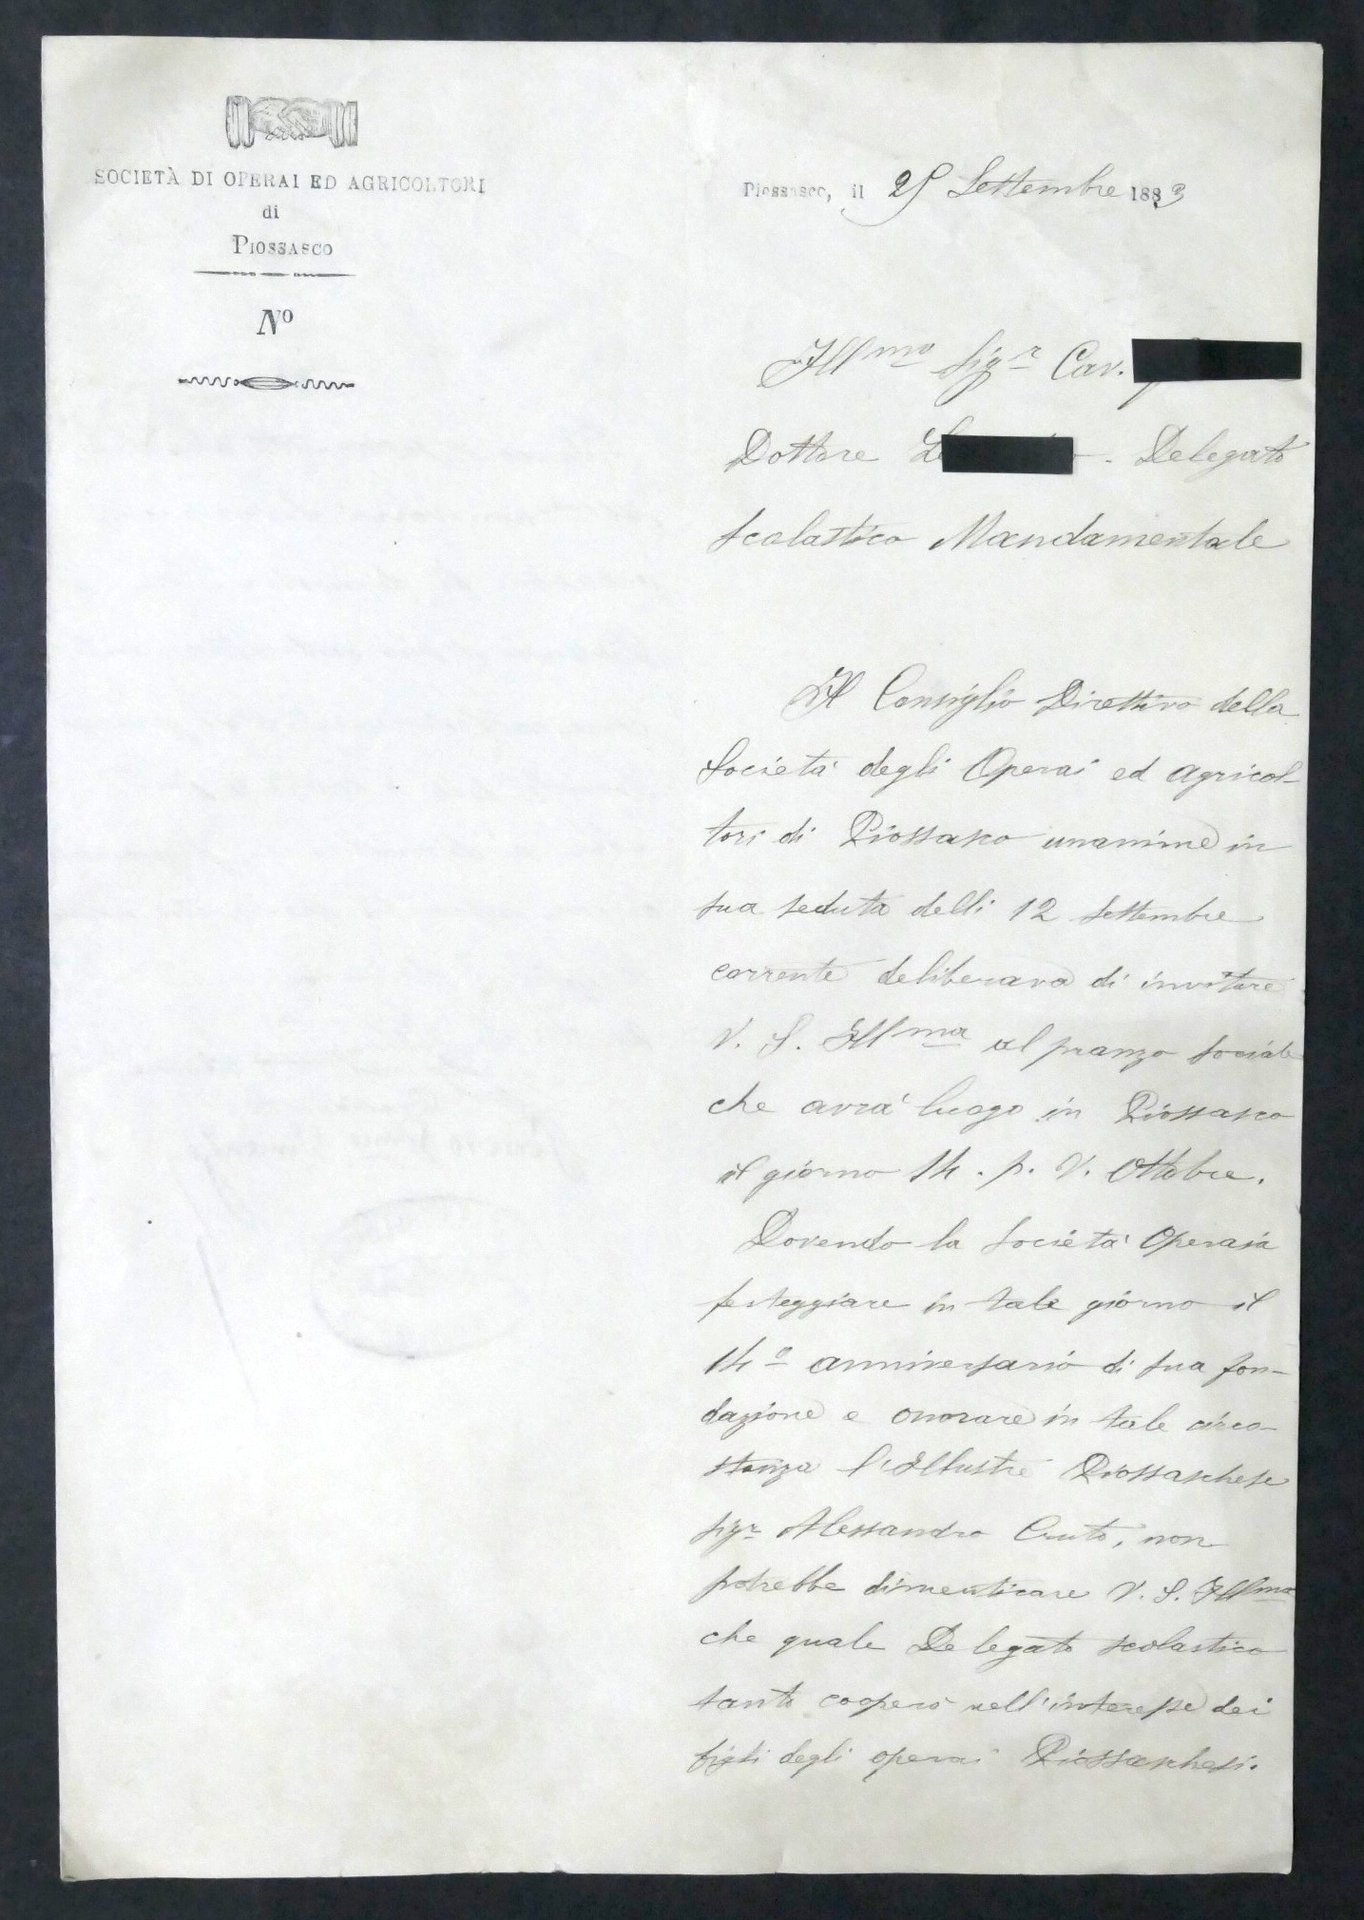 SOCIETÀ DI OPERAI ED AGRICOLTORI
di
PIOSSASCO
Nº
Piossasco, il 25 Settembre 1883
Illmo Sigr Cav.
Dottore Delegato
Scolastico Mandamentale
Il Consiglio Direttivo della
Società degli Operai ed Agricol-
tori di Piossasco unanime in
sua seduta delli 12 Settembre
corrente deliberava di invitare
V. S. Illma al pranzo sociale
che avrà luogo in Piossasco
il giorno 14. p. v. Ottobre.
Dovendo la Società Operaia
festeggiare in tale giorno il
14º anniversario di sua fon-
dazione e onorare in tale circo-
stanza l'Illustre Piossaschese
Sigr Alessandro Cruto, non
potrebbe dimenticare V. S. Illma
che quale Delegato scolastico
tanto cooperò nell'interesse dei
figli degli operai Piossaschesi.